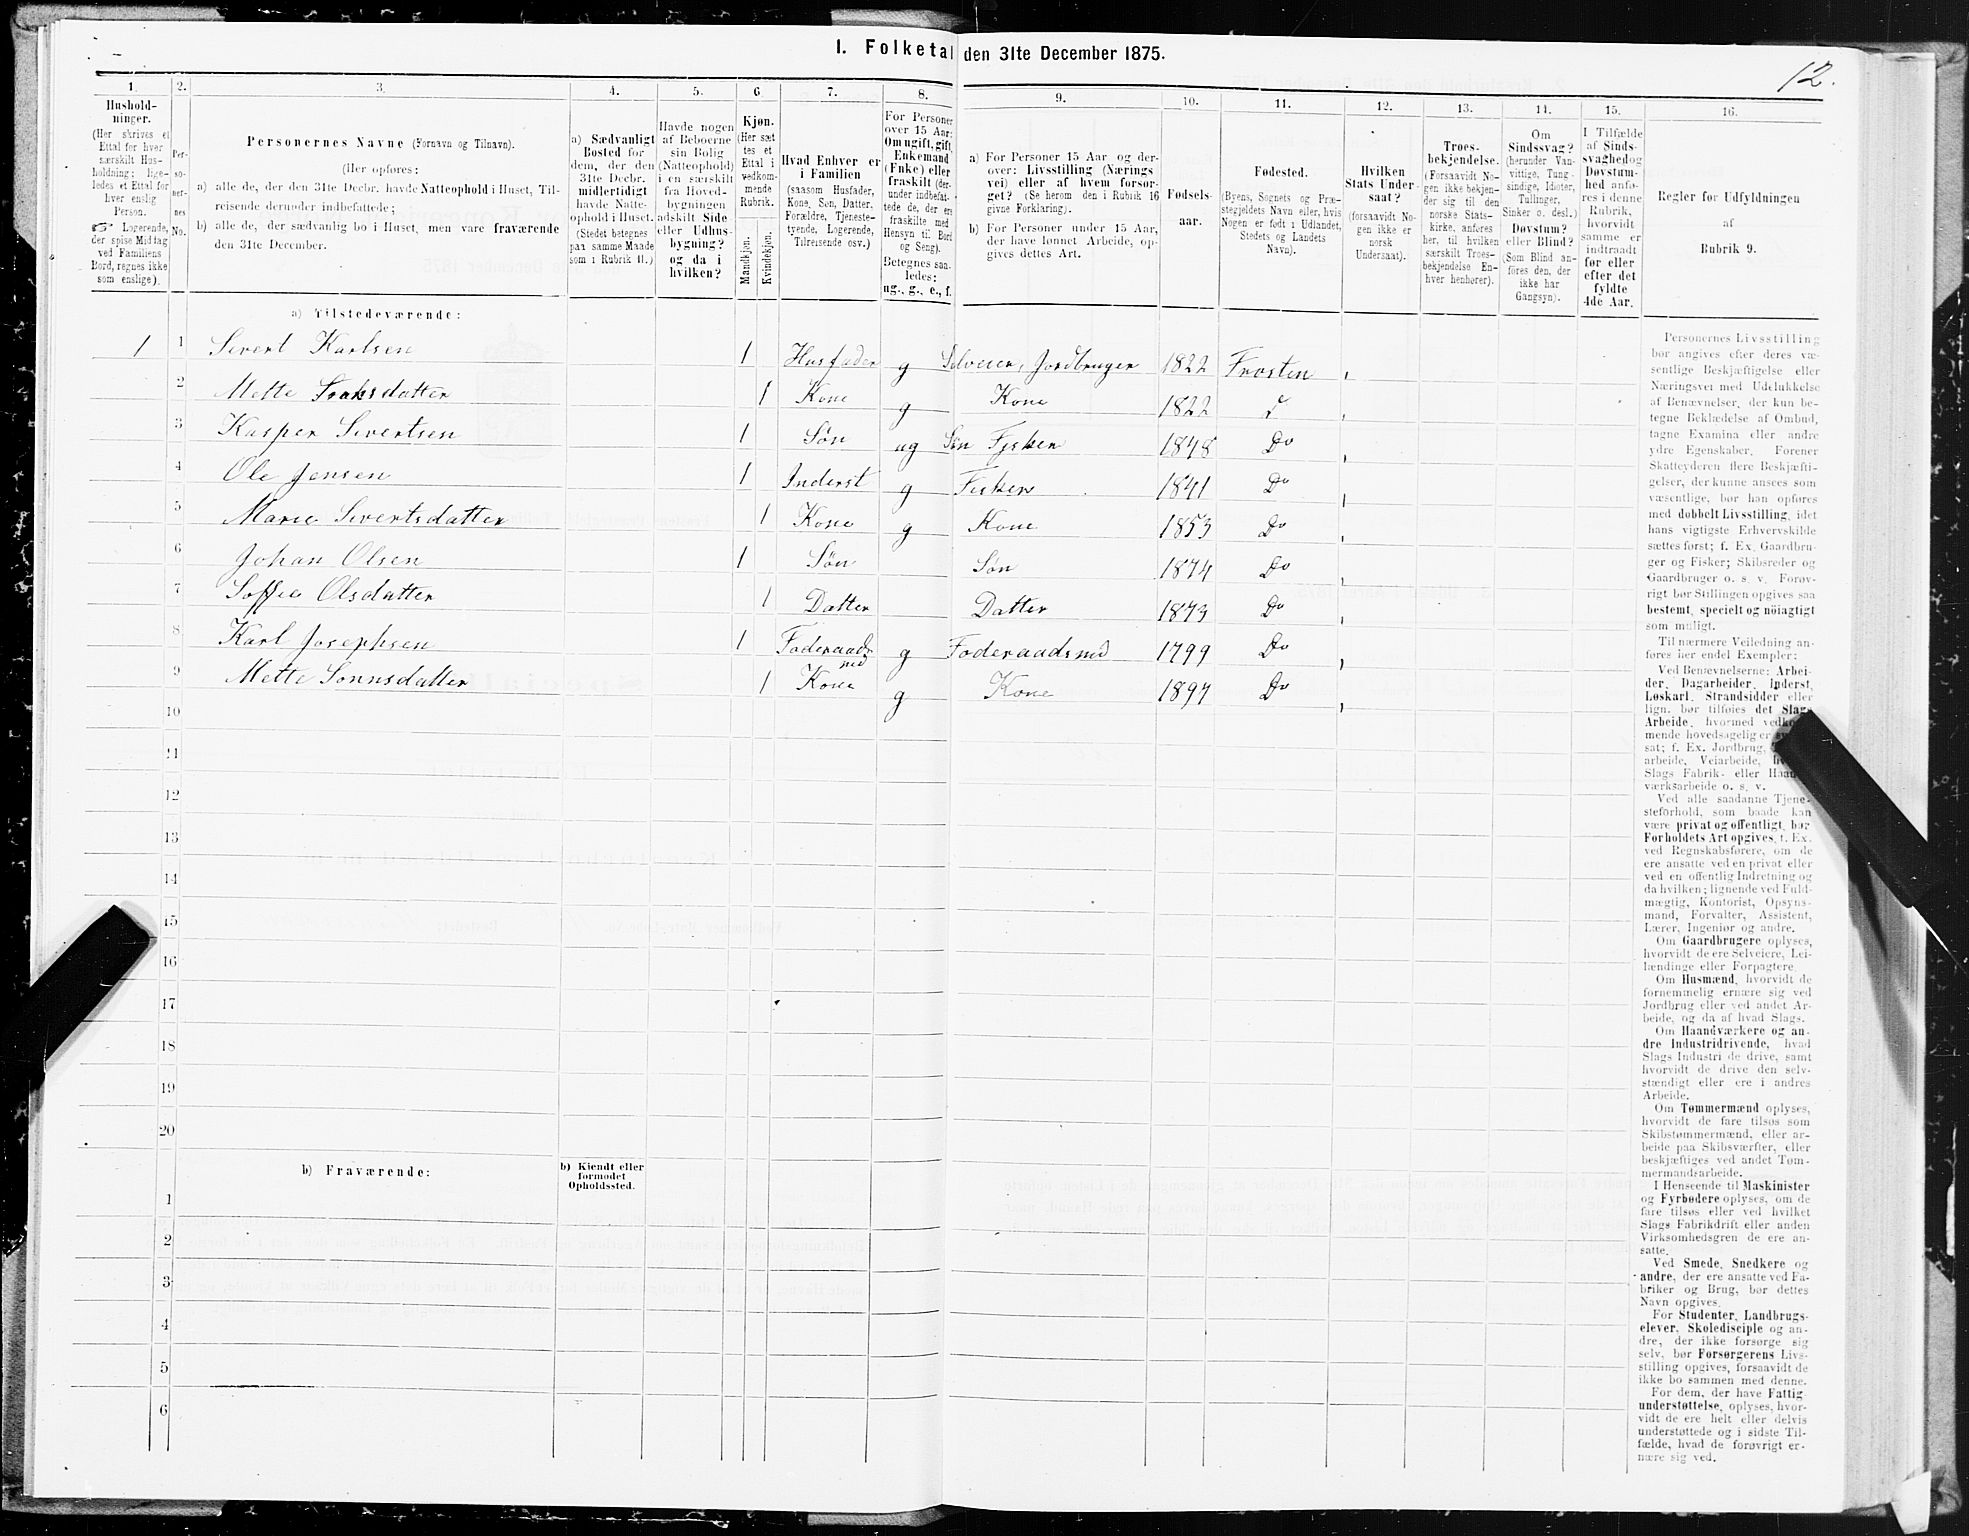 I. Folketal den 31te December 1875.
12.
1.
2.
3.
4.
5.
6.
7.
8.
9.
10.
11.
12.
13.
14.
15.
16.
Hushold-
ninger.
(Her skrives et
Ettal for hver
særskilt Hus-
holdning; lige-
ledes et Ettal for
hver enslig
Person.
☞ Logerende,
der spise Middag
ved Familiens
Bord, regnes ikke
som enslige).
Per-
so-
ner-
nes
No.
Personernes Navne (Fornavn og Tilnavn).
(Her opføres:
a) alle de, der den 31te Decbr. havde Natteophold i Huset, Til-
reisende derunder indbefattede;
b) alle de, der sædvanlig bo i Huset, men vare fraværende
den 31te December.
a) Sædvanligt
Bosted for
dem, der den
31te Decbr.
midlertidigt
havde Natte-
ophold i Huset.
(Stedet betegnes
paa samme Maade
som i Rubrik 11.)
Havde nogen
af Beboerne
sin Bolig
(Natteophold)
i en særskilt
fra Hoved-
bygningen
adskilt Side
eller Udhus-
bygning?
og da i
hvilken?
Kjøn.
(Her sæt
tes et
Ettal i
vedkom-
mende
Rubrik.
Mandkjøn.
Kvindekjøn.
Hvad Enhver er
i Familien
(saasom Husfader,
Kone, Søn, Datter,
Forældre, Tjeneste-
tyende, Logerende,
Tilreisende osv.)
For Personer
over 15 Aar:
Om ugift, gift,
Enkemand
(Enke) eller
fraskilt (der-
under indbefat-
tede de, der ere
fraskilte med
Hensyn til Bord
og Seng).
Betegnes saa-
ledes:
ug., g., e., f.
a) For Personer 15 Aar og der-
over: Livsstilling (Nærings
vei) eller af hvem forsør-
get? (Se herom den i Rubrik 16
givne Forklaring).
b) For Personer under 15 Aar,
der have lønnet Arbeide, op-
gives dettes Art.
Fødsels-
aar.
Fødested.
(Byens, Sognets og Præ-
stegjeldets Navn eller, hvis
Nogen er født i Udlandet,
Stedets og Landets
Navn).
Hvilken
Stats Under-
saat?
(forsaavidt No-
gen ikke er
norsk
Undersaat).
Troes-
bekjendelse.
(Forsaavidt No-
gen ikke bekjen-
der sig til den
norske Stats-
kirke, anføres
her, til hvilken
særskilt Troes-
bekjendelse En-
hver henhører).
Om
Sindssvag?
(herunder Van-
vittige, Tung-
sindige, Idioter,
Tullinger,
Sinker o. desl.)
Døvstum?
eller Blind?
(Som Blind an-
føres den, der
ikke har
Gangsyn).
I Tilfælde
af Sinds-
svaghed og
Døvstum-
hed anfø-
res i denne
Rubrik,
hvorvidt
samme er
indtraadt
før eller
efter det
fyldte
4de Aar.
Regler for Udfyldningen
af
Rubrik 9.
a) Tilstedeværende:
1 1 Sivert Karlsen 1 Husfader g Selveier, Jordbruger 1822 Frosten
2 Mette 1 Kone g Kone 1822
3 Kasper Sivertsen 1 Søn ug Søn Fisker 1848 Do
4 Ole Jensen 1 Inderst g Fisker 1841 Do
5 Marie Sivertsdatter 1 Kone g Kone 1853 Do
6 Johan Olsen 1 Søn Søn 1874 Do
7 Soffia Olsdatter 1 Datter Datter 1873 Do
8 Karl Josephsen 1 Føderaads md g Føderaadsmd 1799 Do
9 Mette Tønnsdatter 1 Kone g Kone 1897 Do
10
11
12
13
14
15
16
17
18
19
20
b) Fraværende:
b) Kjendt eller
formodet
Opholdssted.
1
2
3
4
5
6
Personernes Livsstilling
bør angives efter deres væ-
sentlige Beskjæftigelse eller
Næringsvei med Udelukkelse
af Benævnelser, der kun be-
tegne Beklædelse af Ombud,
tagne Examina eller andre
ydre Egenskaber. Forener
Skatteyderen flere Beskjæfti-
gelser, der kunne ansees som
væsentlige, bør han opføres
med dobbelt Livsstilling, idet
hans vigtigste Erhvervskilde
sættes først; f. Ex. Gaardbru-
ger og Fisker; Skibsreder og
Gaardbruger o. s. v. Forøv-
rigt bør Stillingen opgives saa
bestemt, specielt og nöiagtigt
som muligt.
Til nærmere Veiledning an-
føres her endel Exempler:
Ved Benævnelserne: Arbei-
der, Dagarbeider, Inderst,
Løskarl, Strandsidder eller
lign. bør tilføies det Slags
Arbeide, hvormed vedkom-
mende hovedsagelig er
sat; f. Ex. Jordbrug,
arbeide, Veiarbeide,
Slags Fabrik- eller Haand-
værksarbeide o. s. v.
Ved alle saadanne Tjene-
steforhold, som baade kan
være privat og offentligt, bør
Forholdets Art opgives, f. Ex.
ved Regnskabsførere, om de
ere ansatte ved en privat eller
ved en offentlig Indretning og
da hvilken; lignende ved Fuld-
mægtig, Kontorist, Opsyns-
mand, Forvalter, Assistent,
Lærer, Ingeniør og andre.
Om Gaardbrugere oplyses,
hvorvidt de ere Selveiere, Lei-
lændinge eller Forpagtere.
Om Husmænd, hvorvidt de
fornemmelig ernære sig ved
Jordbrug eller ved andet Ar-
beide, og da af hvad Slags.
Om Haandværkere og an-
dre Industridrivende, hvad
Slags Industri de drive, samt
hvorvidt de drive den selv-
stændigt eller ere i andres
Arbeide.
Om Tømmermænd oplyses,
hvorvidt de fare tilsøs som
Skibstømmermænd, eller ar-
beide paa Skibsværfter, eller
beskjæftiges ved andet Tøm-
mermandsarbeide.
I Henseende til Maskinister
og Fyrbødere oplyses, om de
fare tilsøs eller ved hvilket
Slags Fabrikdrift eller anden
Virksomhedsgren de ere an-
satte.
Ved Smede, Snedkere og
andre, der ere ansatte ved Fa-
briker og Brug, bør dettes
Navn opgives.
For Studenter, Landbrugs-
elever, Skoledisciple og an-
dre, der ikke forsørge sig
selv, bør Forsørgerens Livs-
stilling opgives, forsaavidt de
ikke bo sammen med denne.
For dem, der have Fattig-
understøttelse, oplyses, hvor-
vidt de ere helt eller delvis
understøttede og i sidste Til-
fælde, hvad de forøvrigt er-
nære sig ved.